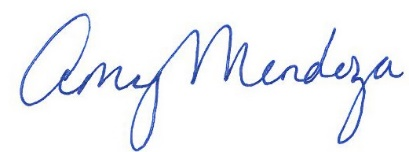 Amy Mendoza